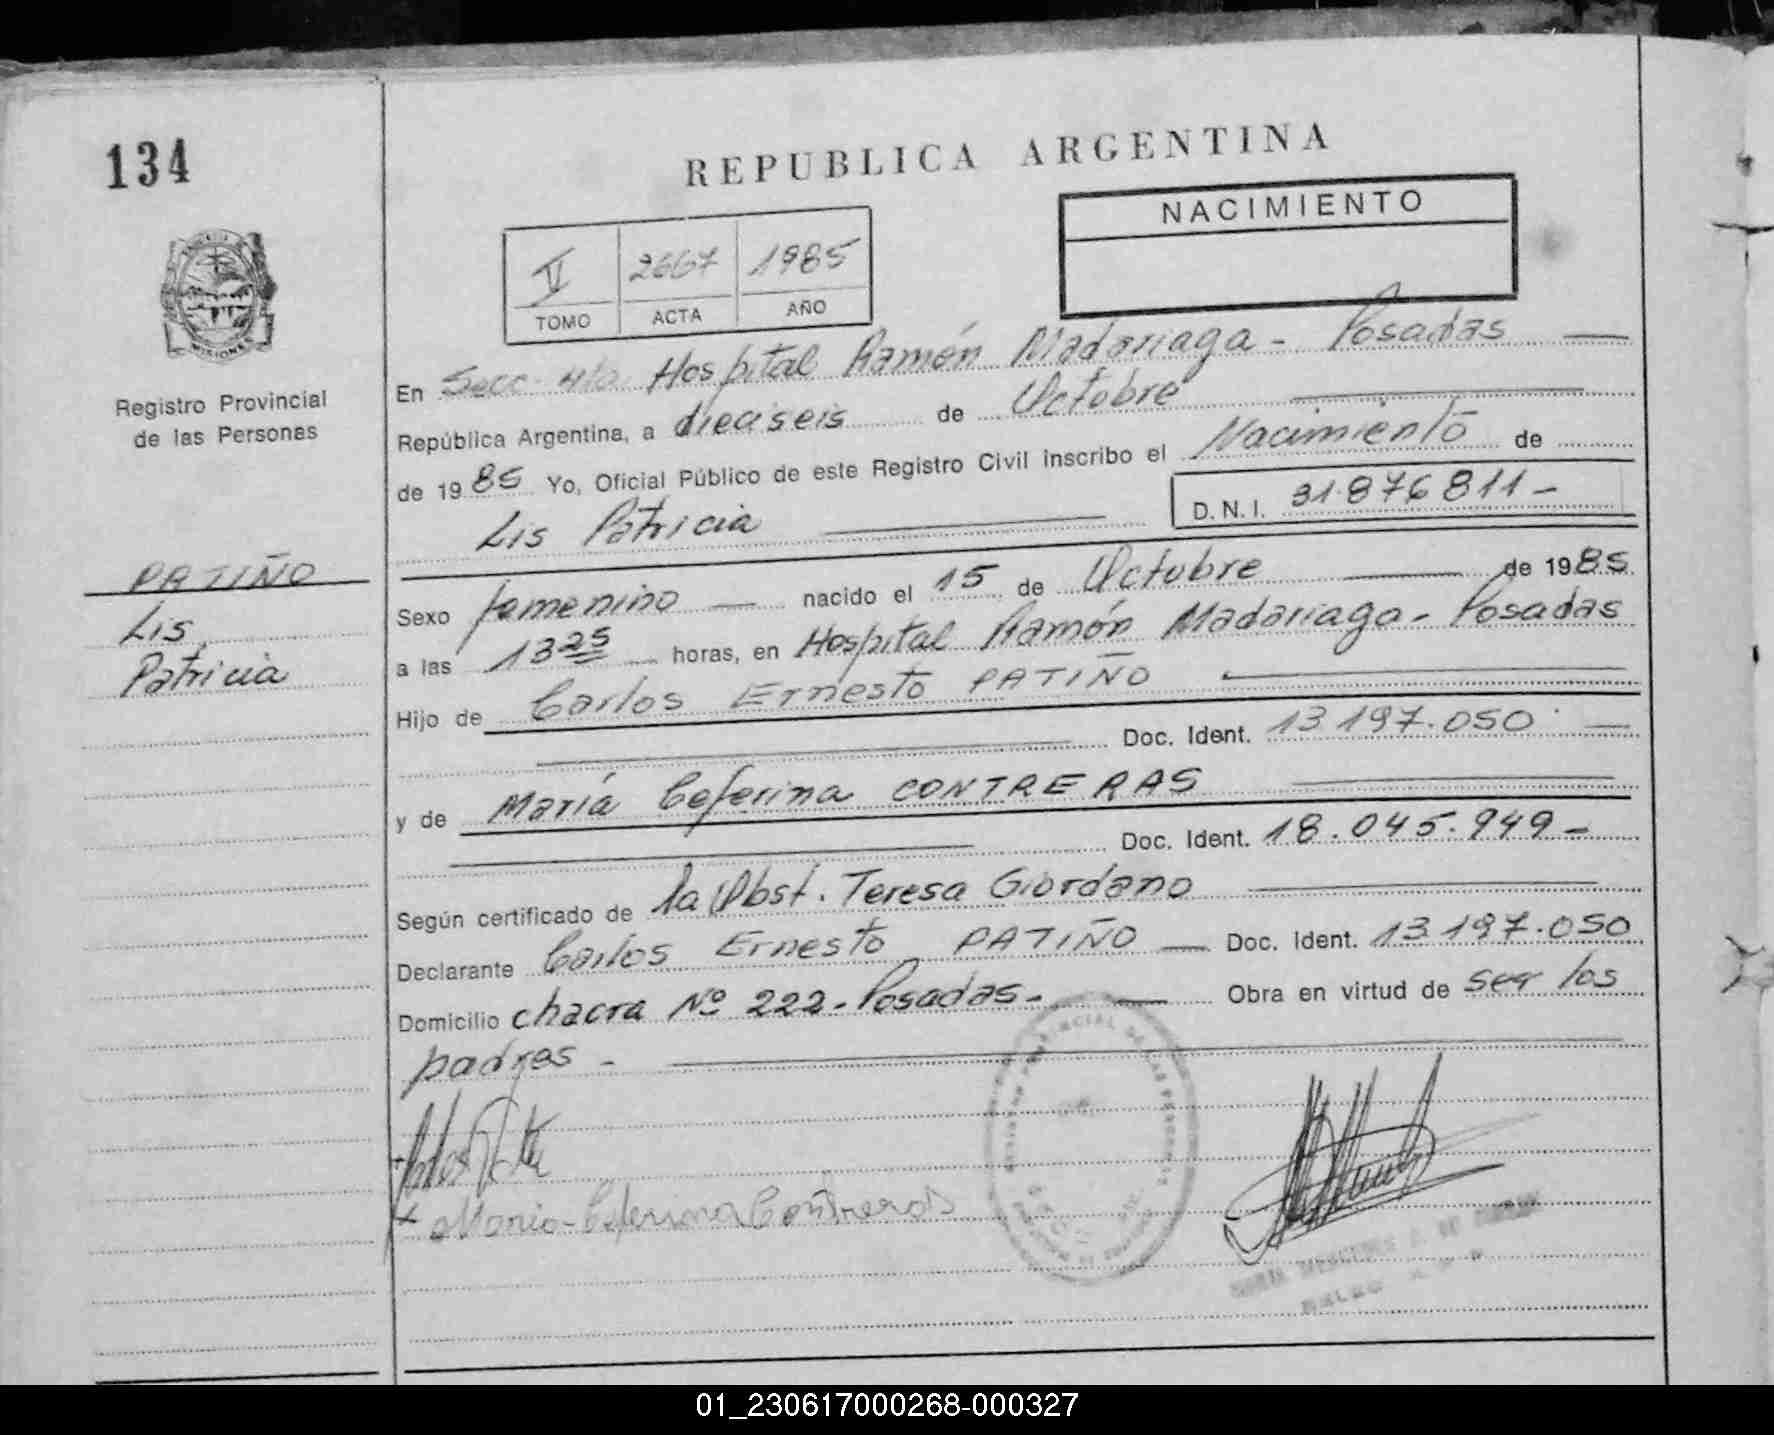 134
REPUBLICA ARGENTINA
NACIMIENTO
2667 1985
TOMO ACTA AÑO
MISIONES
Registro Provincial
de las Personas
PATIÑO
Lis
Patricia
En Secc. 4ta. Hospital Ramón Madariaga - Posadas
República Argentina, a dieciseis de Octubre
de 1985 Yo, Oficial Público de este Registro Civil inscribo el Nacimiento de
Lis Patricia D.N.I. 31.876811-
Sexo femenino nacido el 15 de Octubre de 1985
a las 13 25 horas, en Hospital Ramón Madariaga - Posadas
Hijo de Carlos Ernesto PATIÑO
Doc. Ident. 13.197.050
y de María Ceferina CONTRERAS
Doc. Ident. 18.045.949-
Según certificado de la Obst. Teresa Giordano
Declarante Carlos Ernesto PATIÑO Doc. Ident. 13.197.050
Domicilio chacra Nº 222 - Posadas - Obra en virtud de ser los
padres -
Maria Ceferina Contreras
01_230617000268-000327